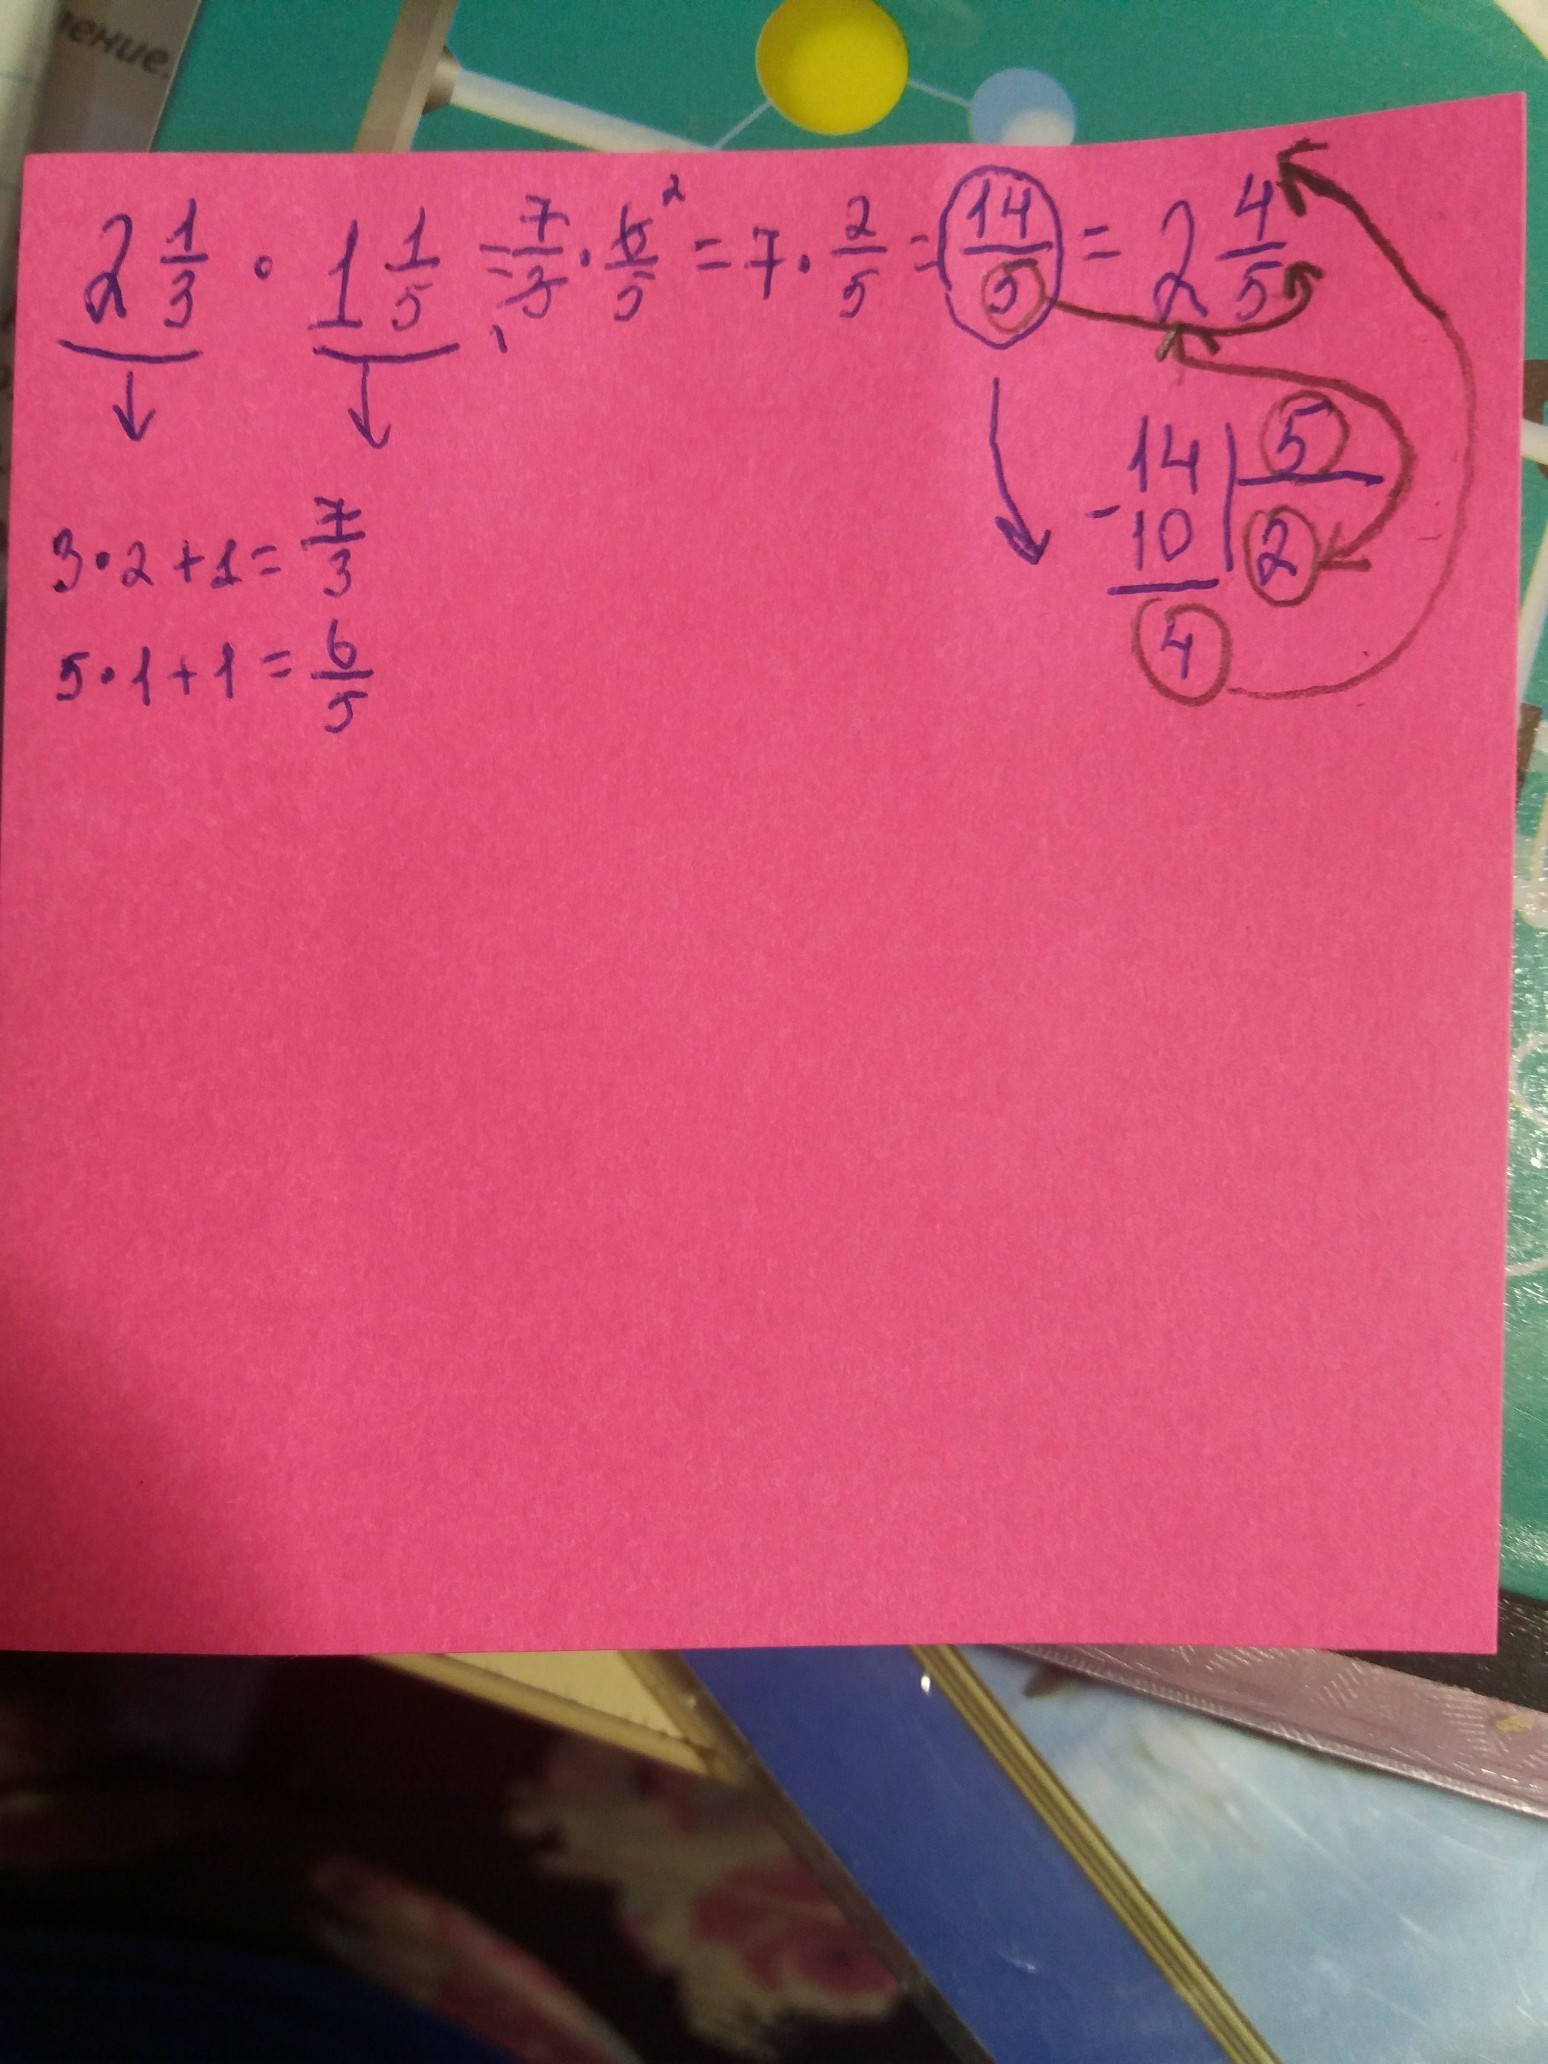 ление.
2 1/3 · 1 1/5 = 7/3 · 6/5 = 7 · 2/5 = 14/5 = 2 4/5
2
1
14 | 5
- 10 | 2
4
3 · 2 + 1 = 7/3
5 · 1 + 1 = 6/5